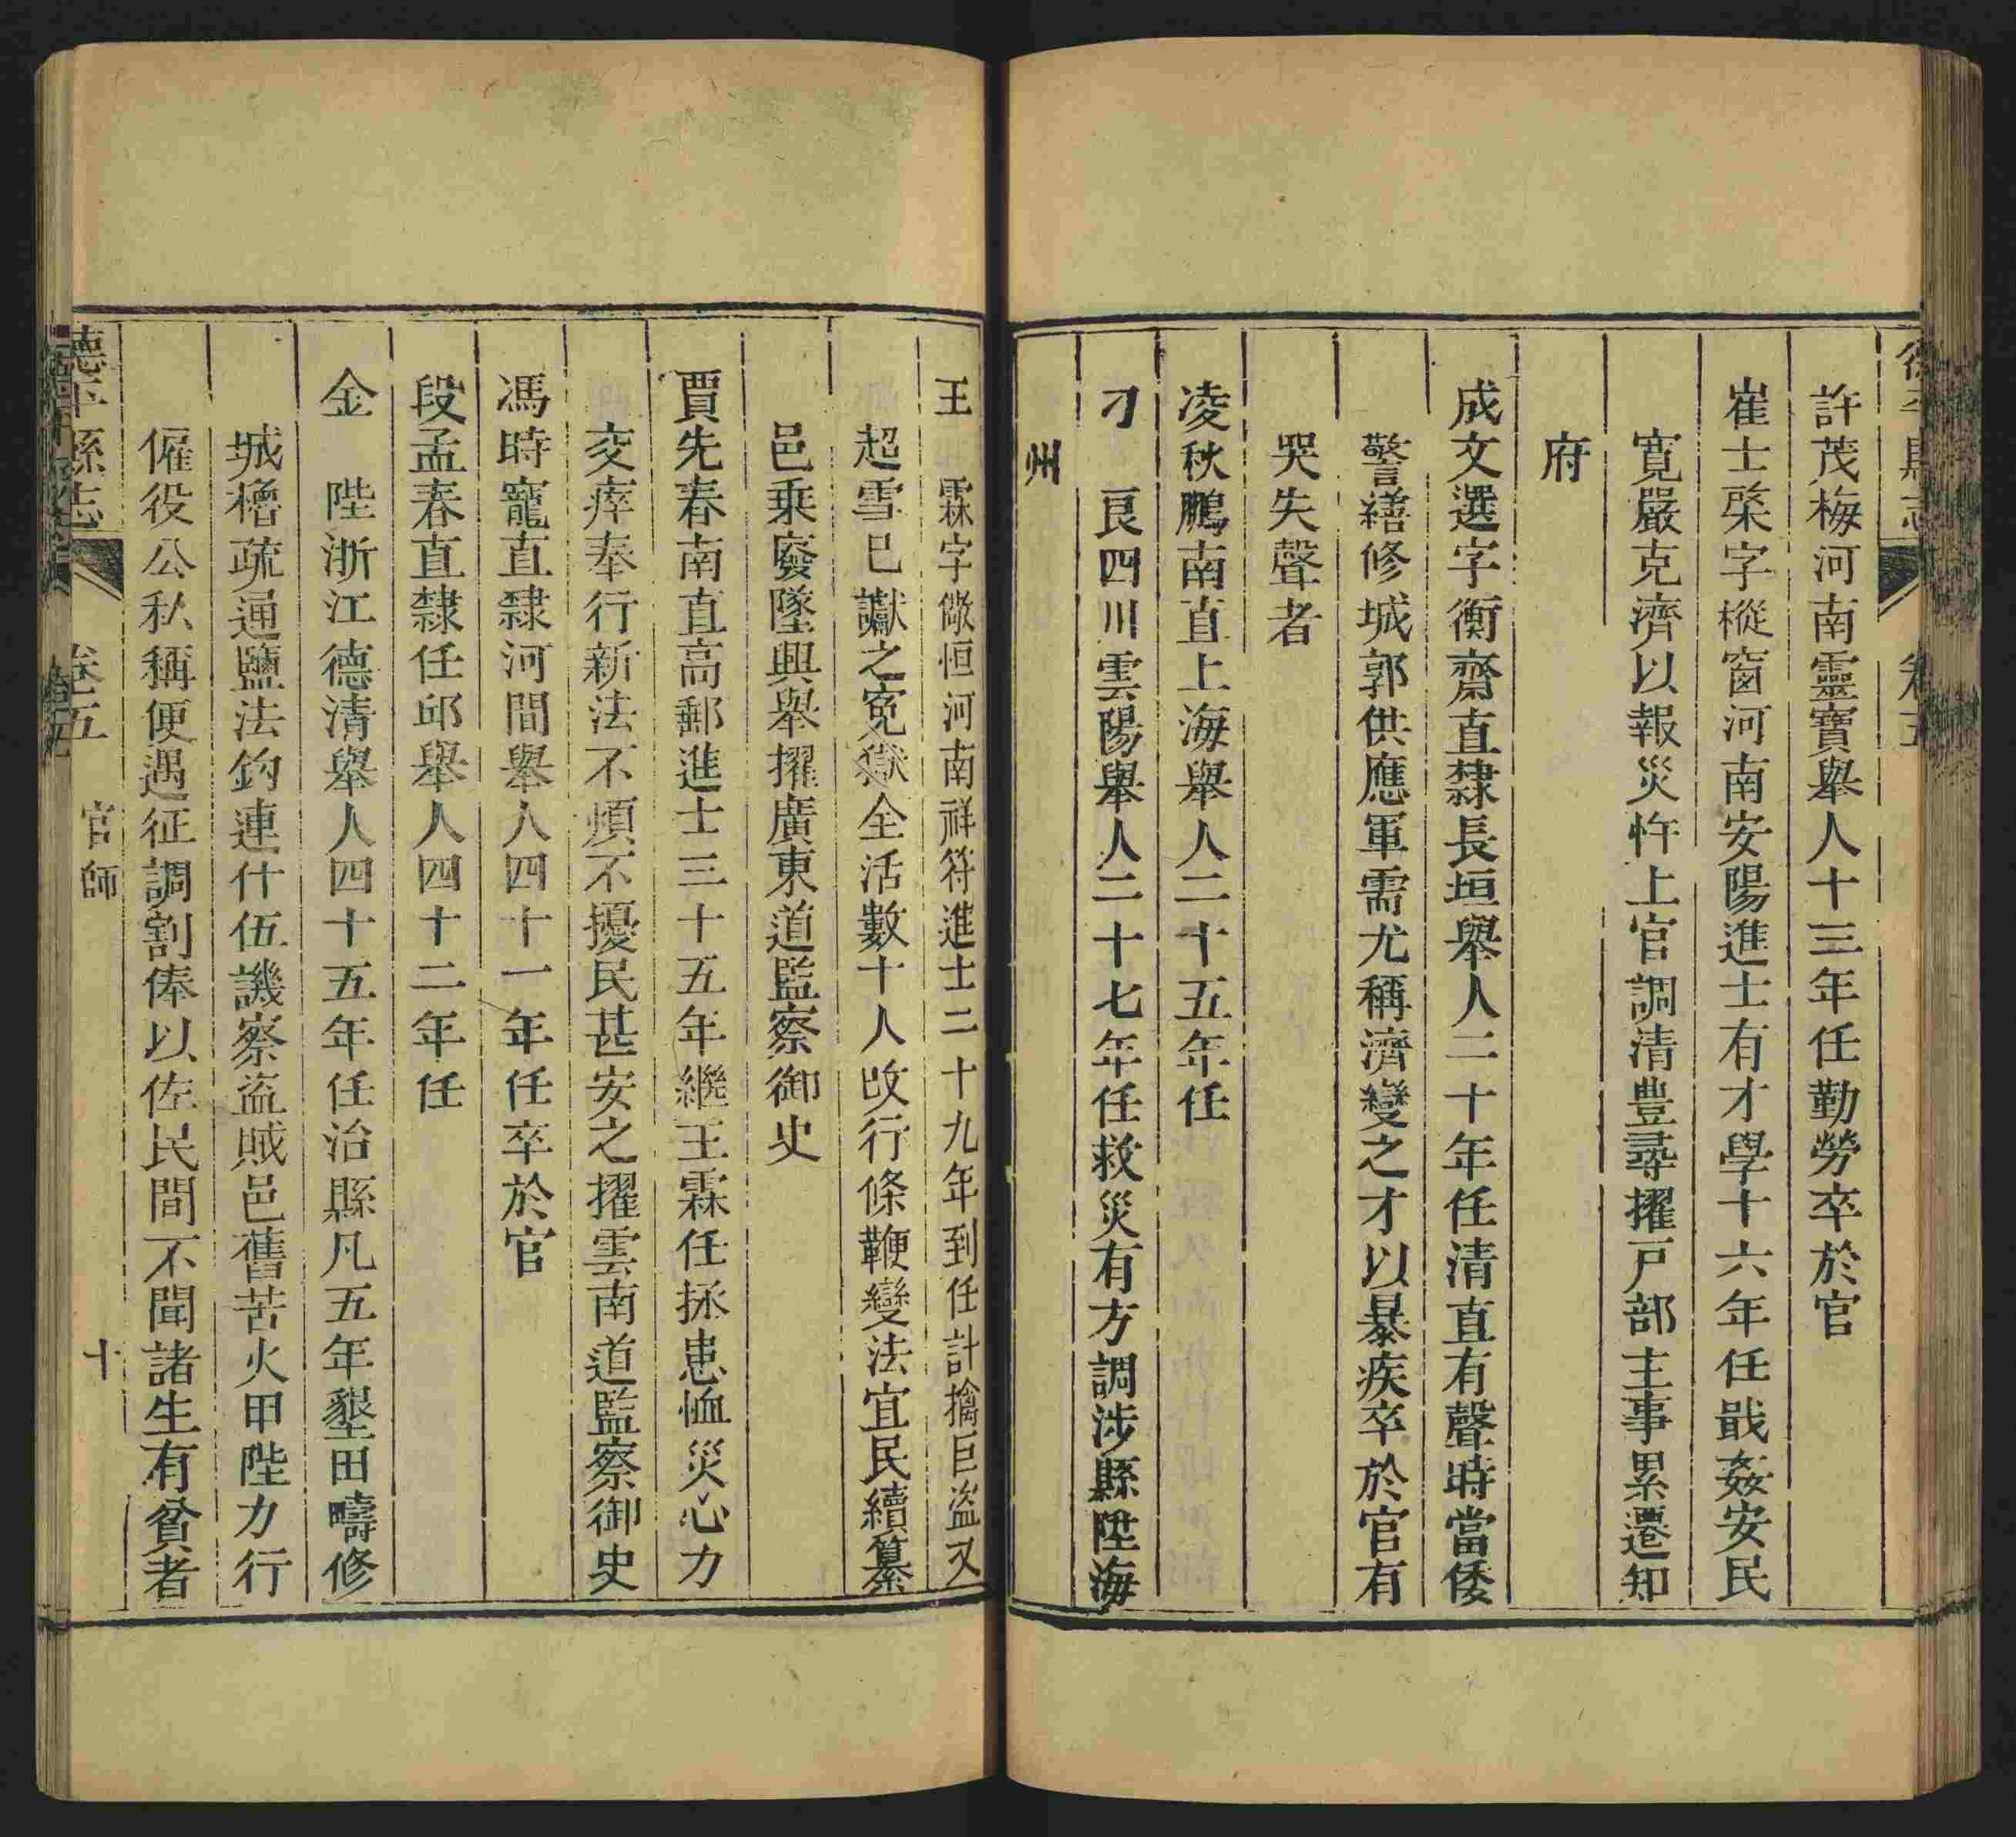 許茂梅河南靈寶舉人十三年任勤勞卒於官
崔士棨字樅窗河南安陽進士有才學十六年任戢姦安民
寬嚴克濟以報災忤上官調清豊尋擢戸部主事累遷知
府
成文選字衡齋直隸長垣舉人二十年任清直有聲時當倭
警繕修城郭供應軍需尤稱濟變之才以暴疾卒於官有
哭失聲者
凌秋鵬南直上海舉人二十五年任
刁　良四川雲陽舉人二十七年任救災有方調涉縣陞海
州
王　霖字儆恒河南祥符進士二十九年到任計擒巨盜又
超雪已讞之寃獄全活數十人改行條鞭變法宜民續纂
邑乗廢墜興舉擢廣東道監察御史
賈先春南直高郵進士三十五年繼王霖任拯患恤災心力
交瘁奉行新法不煩不擾民甚安之擢雲南道監察御史
馮時寵直隸河間舉人四十一年任卒於官
段孟春直隸任邱舉人四十二年任
金　陛浙江德清舉人四十五年任治縣凡五年墾田疇修
城櫓疏通鹽法鈎連什伍譏察盜賊邑舊苦火甲陛力行
僱役公私稱便遇征調割俸以佐民間不聞諸生有貧者
德平縣志　卷五　官師　十